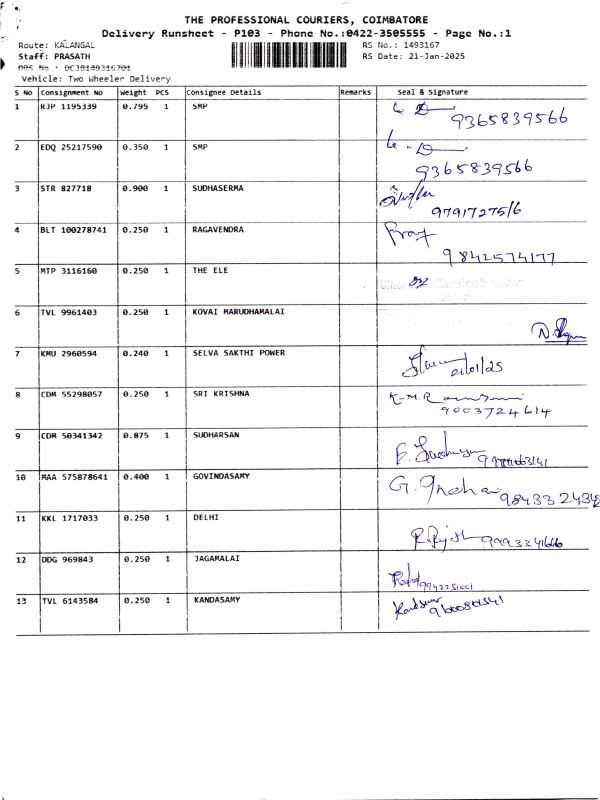 THE PROFESSIONAL COURIERS, COIMBATORE
Delivery Runsheet - P103 - Phone No.:0422-3505555 - Page No.:1
Route: KALANGAL RS No.: 1493167
Staff: PRASATH RS Date: 21-Jan-2025
DRS No - DCJB149316701
Vehicle: Two Wheeler Delivery
S No Consignment No Weight PCS Consignee Details Remarks Seal & Signature
1 RJP 1195339 0.795 1 SMP
9365839566
2 EDQ 25217590 0.350 1 SMP
9365839566
3 STR 827718 0.900 1 SUDHASERMA
9791727516
4 BLT 100278741 0.250 1 RAGAVENDRA
9842574177
5 MTP 3116160 0.250 1 THE ELE
6 TVL 9961403 0.250 1 KOVAI MARUDHAMALAI
7 KMU 2960594 0.240 1 SELVA SAKTHI POWER
21/01/25
8 CDM 55298057 0.250 1 SRI KRISHNA
K-M.R
9003724614
9 CDM 50341342 0.875 1 SUDHARSAN
10 MAA 575878641 0.400 1 GOVINDASAMY
G. 9843324342
11 KKL 1717033 0.250 1 DELHI
12 DDG 969843 0.250 1 JAGAMALAI
9942251001
13 TVL 6143584 0.250 1 KANDASAMY